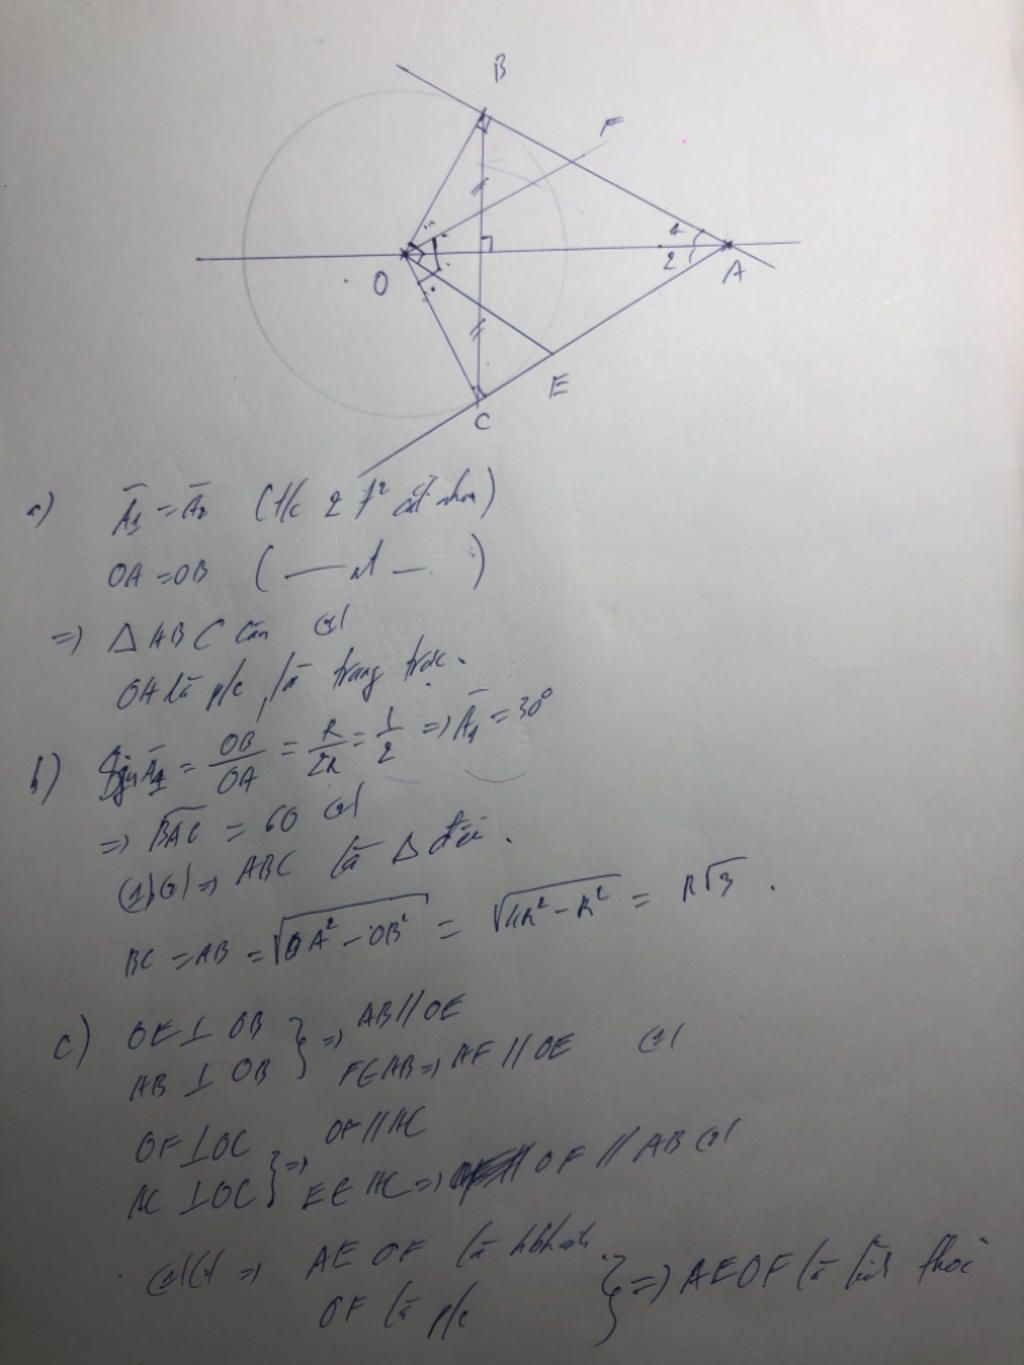 B
F
O
1
2
A
E
C
a) A₁ = A₂ (t/c 2 t² cắt nhau)
OA = OB ( — nt — )
=> Δ ABC cân (1)
OA là p/g, là trung trực.
b) Sin A₁ = OB/OA = R/2R = 1/2 => A₁ = 30°
=> BAC = 60 (2)
(1)(2) => ABC là Δ đều.
BC = AB = √(OA² - OB²) = √(4R² - R²) = R√3.
c) OE ⊥ OB } => AB // OE
AB ⊥ OB F∈AB => AF // OE (1)
OF ⊥ OC } => OF // AC
AC ⊥ OC E∈AC => OF // AB (2)
(1)(2) => AEOF là hbhành } => AEOF là hình thoi
OF là p/g